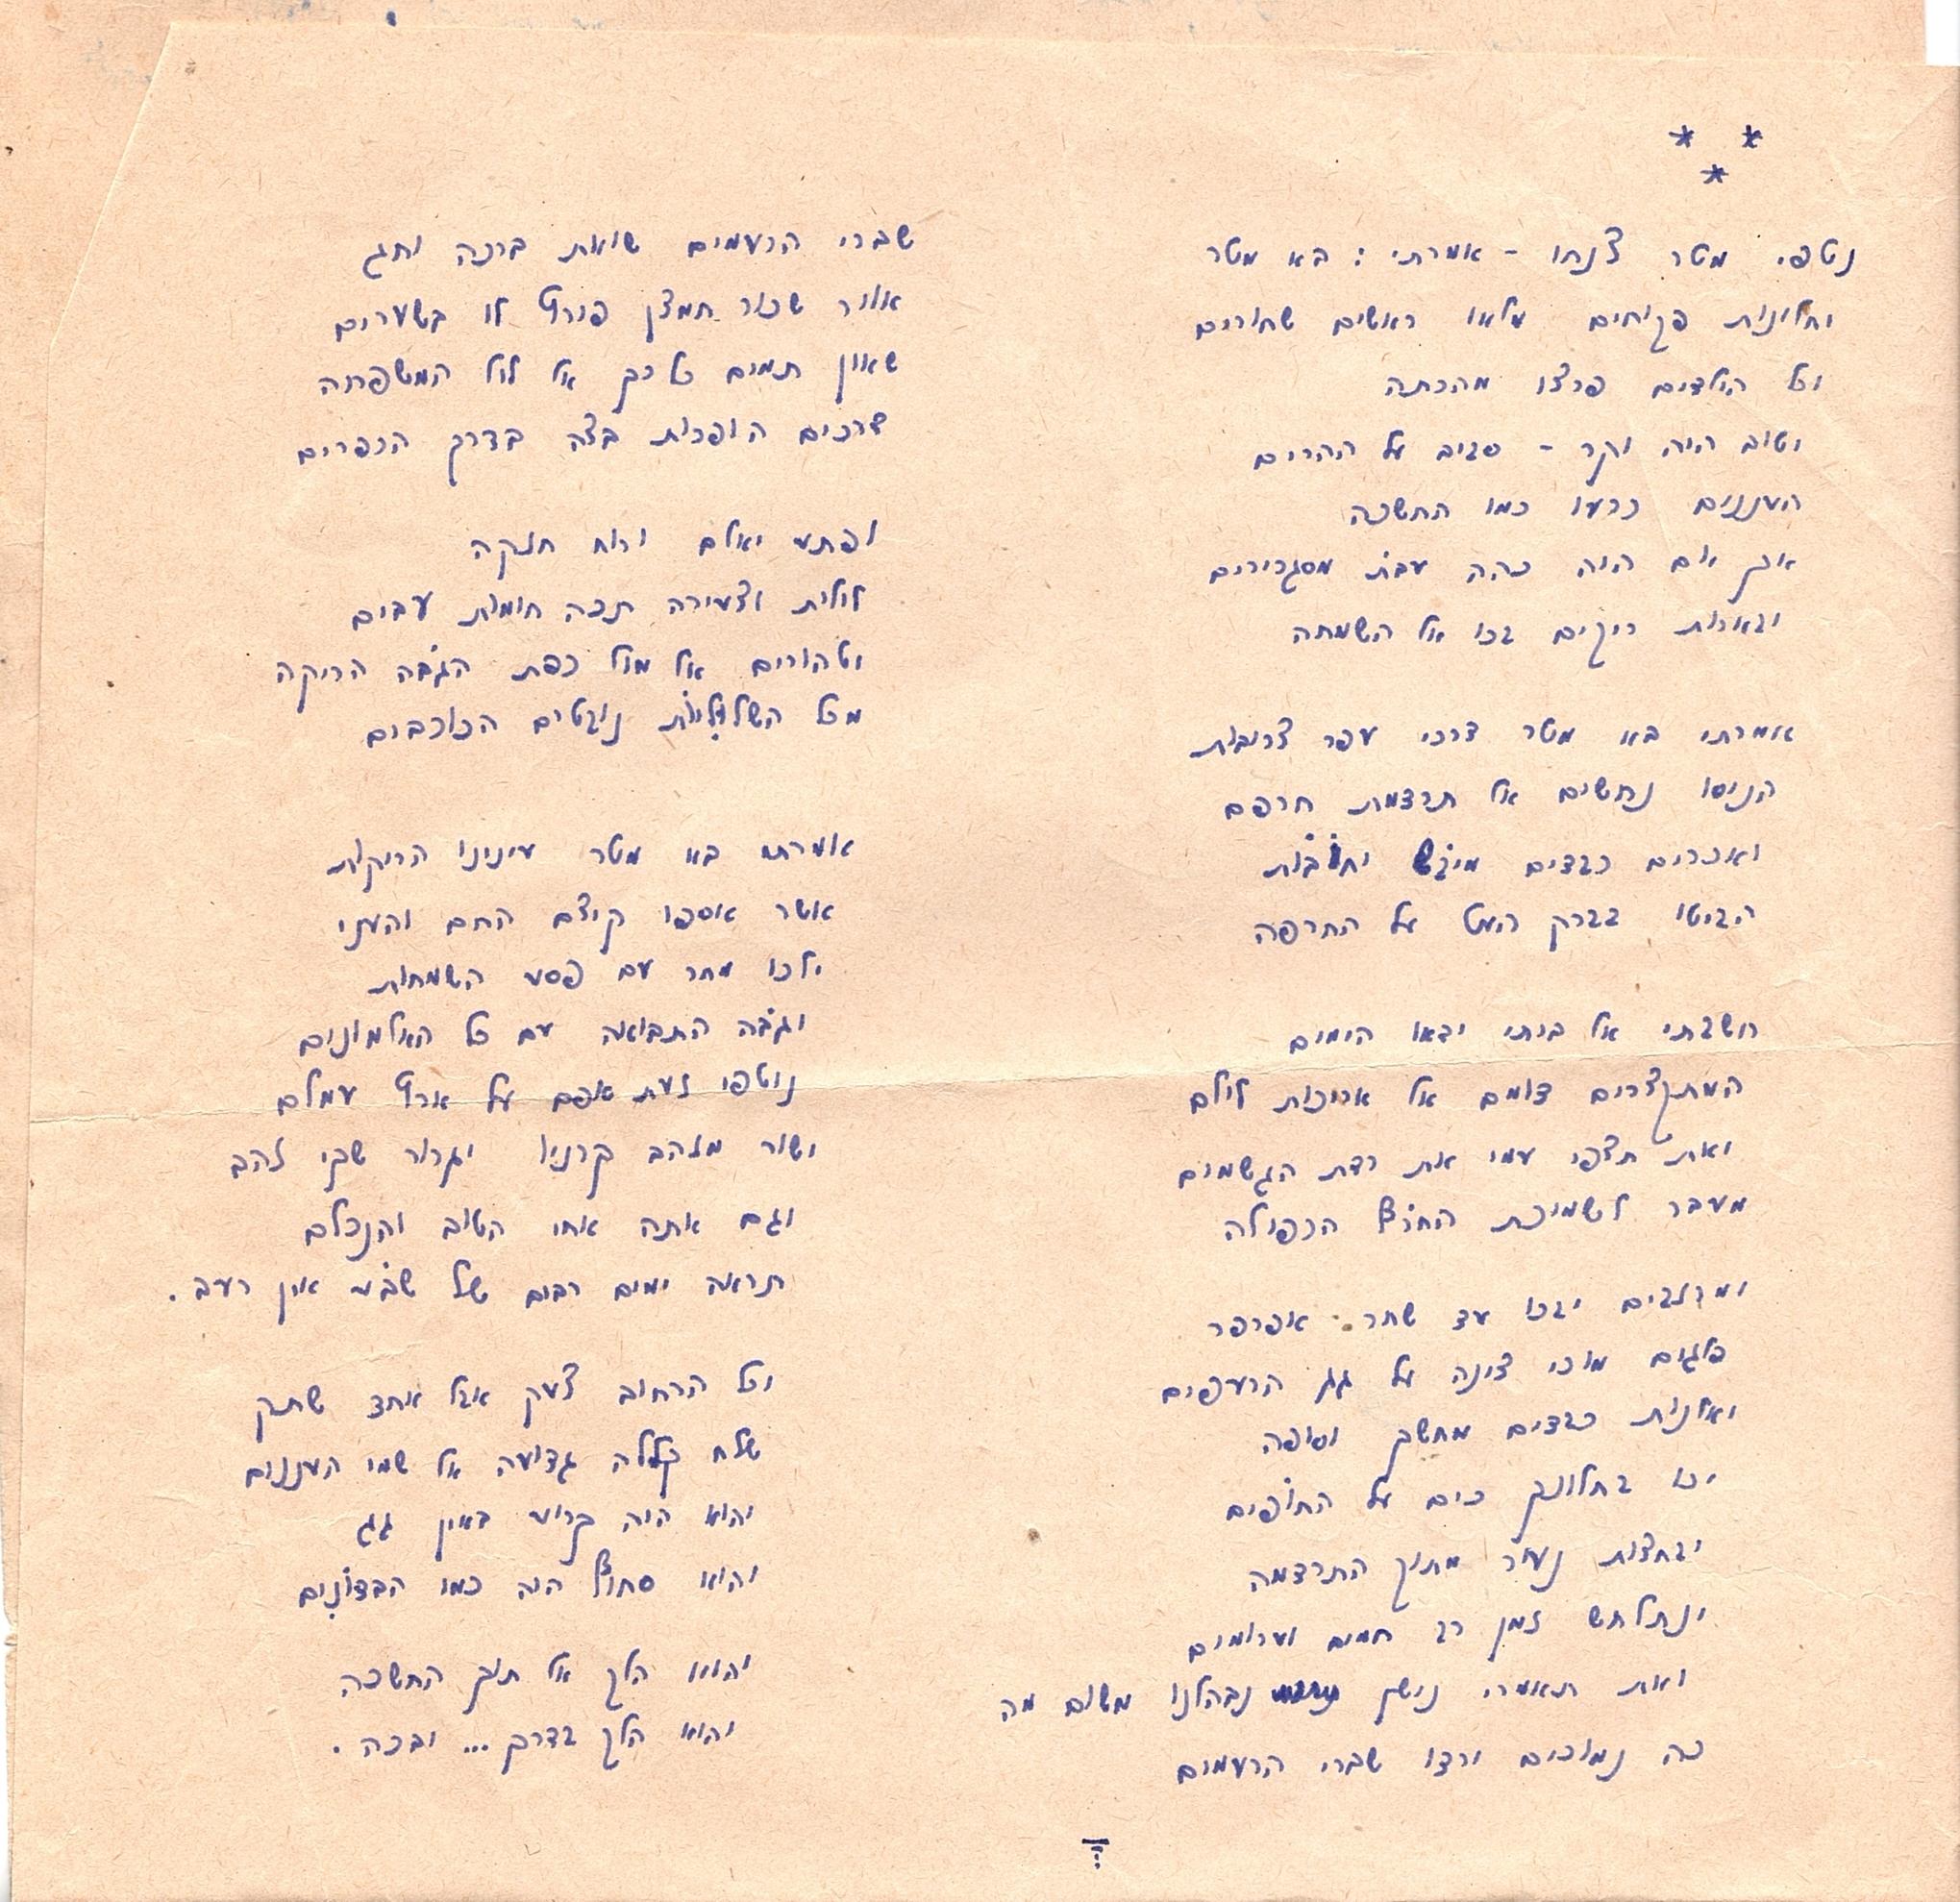 * *
*
נטפי מטר צנחו - אמרתי : בא מטר
וחלונות פקוחים עלאו ראשים שחורים
וכל הילדים פרצו מהכתה
וטוב היה וקר - סביב על ההרים
העננים כרעו כמו החשכה
אך אם היה כהה עבות מסגרירים
ובארות ריקים בכו אל השמחה
אמרתי בא מטר דרכי עפר צרובות
הניסו נחשים אל תרדמת חרפם
ואכרים כבדים מיובש וחובות
הביטו בברק העט על החרפה
חשבתי אל ביתי יבאו הימים
המתקצרים דומם אל אריכות לילם
ואת תצפי עמי את רדת הגשמים
מעבר לשמיכת החורף הכפולה
ומרזבים יבכו עד שחר אפרפר
פלגים מוכי צינה על גג הרעפים
ואילנות כבדים מחשך וסופה
יכו בחלונך כים על החופים
ובחצות נעור מתוך התרדמה
ונתלחש זמן רב חמים וערומים
ואת תאמרי נישן נבהלנו משום מה
כה נמוכים ורצו שברי הרעמים
שברי הרעמים שואת ברכה וחג
אויר שכור חמצן פורץ לו בשערים
שאון תמים כל כך אל ליל המשפחה
דרכים הופכות בצה בדרך הכפרים
ופתע יאלם ורוח חנקה
לילית וצעירה תכה חומות עבים
וטהורים אל מול כפת הגובה הריקה
מכל השלוליות נובטים הכוכבים
אמרתי בא מטר עינינו הריקות
אשר אספו קיצם החם והעני
ילכו מחר עם פסע השמחות
וגובה התבואה עם כל האלמונים
נוטפי זעת אפם על ארץ עמלם
ושור מזהב קרניו יגרור שקי זהב
וגם אתה אחי הטוב והנכלם
תראה ימים רבים של שובע אין רעב.
וכל הרחוב צעק אבל אחד שתק
שלח קללה גדועה אל שמי העננים
והוא היה קרוע באין גג
והוא סחוף היה כמו הבדונים
והוא הלך אל תוך החשכה
והוא הלך בדרך ... ובכה .